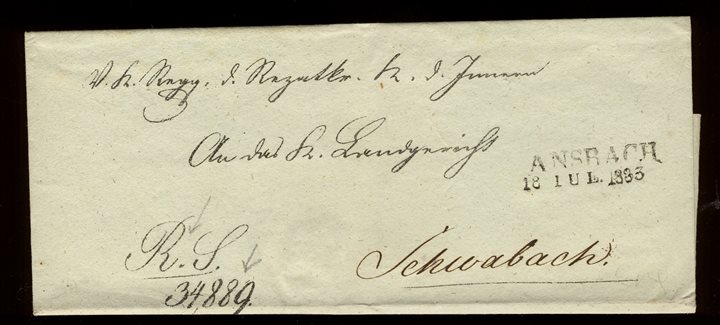 V. K. Regg. d. Rezatkr. K. d. Innern
An das K. Landgericht
ANSBACH
18 IUL. 1833
R. S.
Schwabach.
34,889.